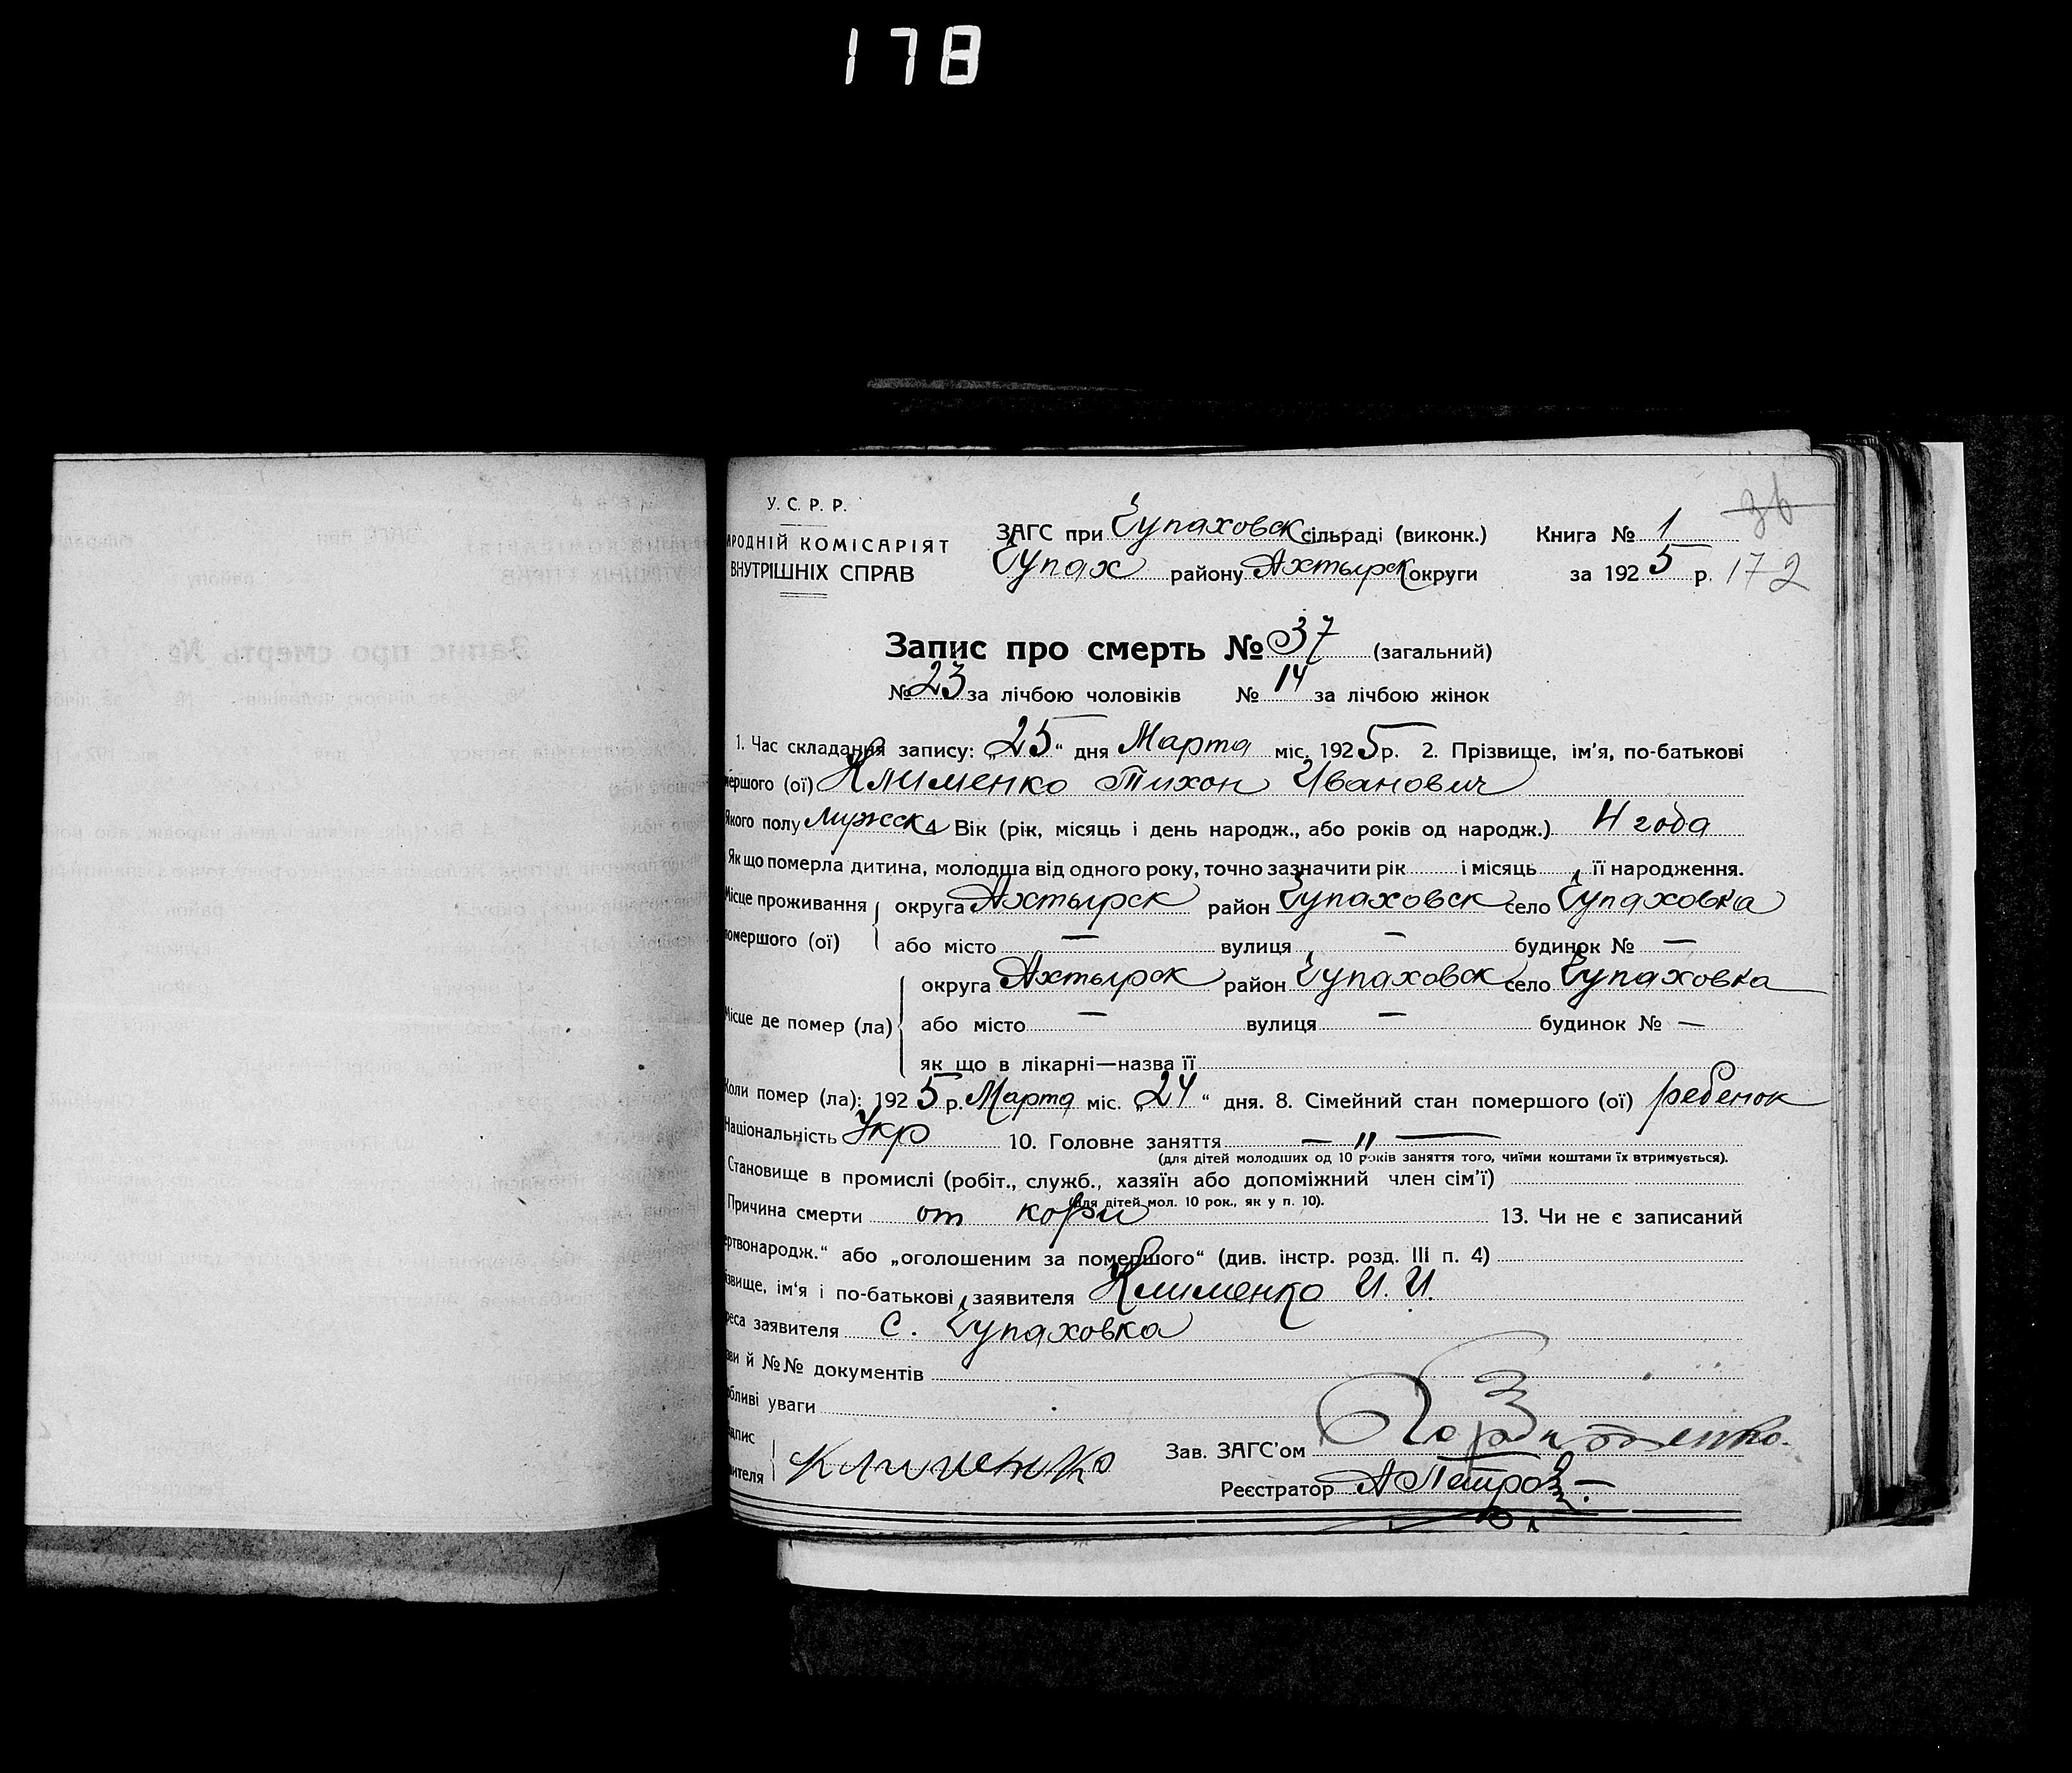 178
У. С. Р. Р.
РОДНІЙ КОМІСАРІЯТ
ВНУТРІШНІХ СПРАВ
ЗАГС при Чупаховск сільраді (виконк.) Книга № 1
36
Чупах району Ахтырск округи за 1925 р. 172
Запис про смерть № 37 (загальний)
№ 23 за лічбою чоловіків № 14 за лічбою жінок
1. Час складання запису: „25“ дня Марта міс. 1925 р. 2. Прізвище, ім'я, по-батькові
мершого (ої) Клименко Тихон Иванович
Якого полу мужск 4 Вік (рік, місяць і день народж., або років од народж.) 4 года
Як що померла дитина, молодша від одного року, точно зазначити рік і місяць її народження.
Місце проживання округа Ахтырск район Чупаховск село Чупаховка
помершого (ої) або місто — вулиця — будинок № —
округа Ахтырск район Чупаховск село Чупаховка
Місце де помер (ла) або місто — вулиця — будинок № —
як що в лікарні—назва її
Коли помер (ла): 1925 р. Марта міс. „24“ дня. 8. Сімейний стан помершого (ої) ребенок
Національність Укр 10. Головне заняття — „ —
(для дітей молодших од 10 років заняття того, чиїми коштами їх втримується).
Становище в промислі (робіт., служб., хазяїн або допоміжний член сім'ї)
(для дітей мол. 10 рок., як у п. 10).
Причина смерти от кори 13. Чи не є записаний
ртвонародж.“ або „оголошеним за помершого“ (див. інстр. розд. III п. 4)
звище, ім'я і по-батькові заявителя Клименко И. И.
реса заявителя с. Чупаховка
зви й №№ документів
бливі уваги
дпис
вителя Клименко
Зав. ЗАГС'ом
Реєстратор АПетров